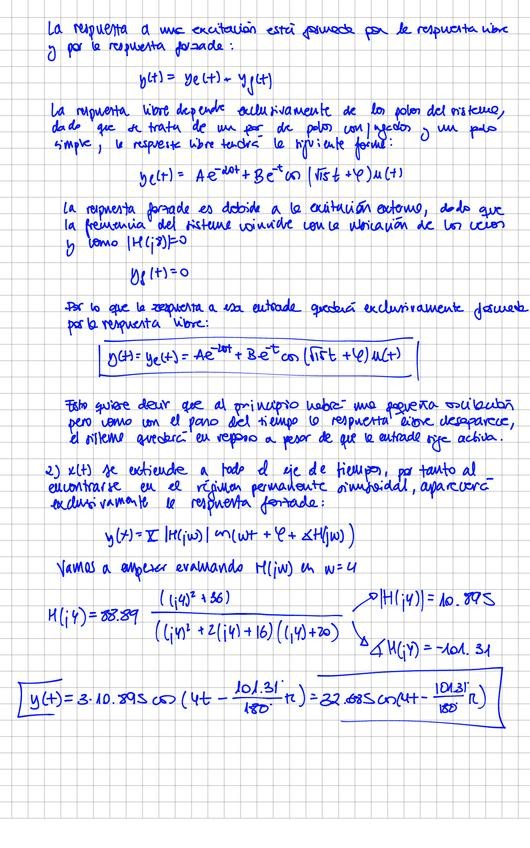 La respuesta a una excitación está formada por la respuesta libre
y por la respuesta forzada:
y(t) = ye(t) + yf(t)
La respuesta libre depende exclusivamente de los polos del sistema,
dado que se trata de un par de polos conjugados y un polo
simple, la respuesta libre tendrá la siguiente forma:
ye(t) = Ae^-20t + Be^-t cos(√15t + φ)u(t)
La respuesta forzada es debida a la excitación externa, dado que
la frecuencia del sistema coincide con la ubicación de los ceros
y como |H(j8)|=0
yf(t)=0
Por lo que la respuesta a esa entrada quedará exclusivamente formada
por la respuesta libre:
y(t) = ye(t) = Ae^-20t + Be^-t cos(√15t + φ)u(t)
Esto quiere decir que al principio habrá una pequeña oscilación
pero como con el paso del tiempo la respuesta libre desaparece,
el sistema quedará en reposo a pesar de que la entrada siga activa.
2) x(t) se extiende a todo el eje de tiempos, por tanto al
encontrarse en el régimen permanente sinusoidal, aparecerá
exclusivamente la respuesta forzada:
y(t) = X |H(jω)| cos(ωt + φ + ∡H(jω))
Vamos a empezar evaluando H(jω) en ω=4
H(j4) = 88.89 ((j4)² + 36) / ((j4)² + 2(j4) + 16)((j4) + 20) → |H(j4)| = 10.895
∡H(j4) = -101.31
y(t) = 3·10.895 cos(4t - 101.31°/180° π) = 32.685 cos(4t - 101.31°/180° π)